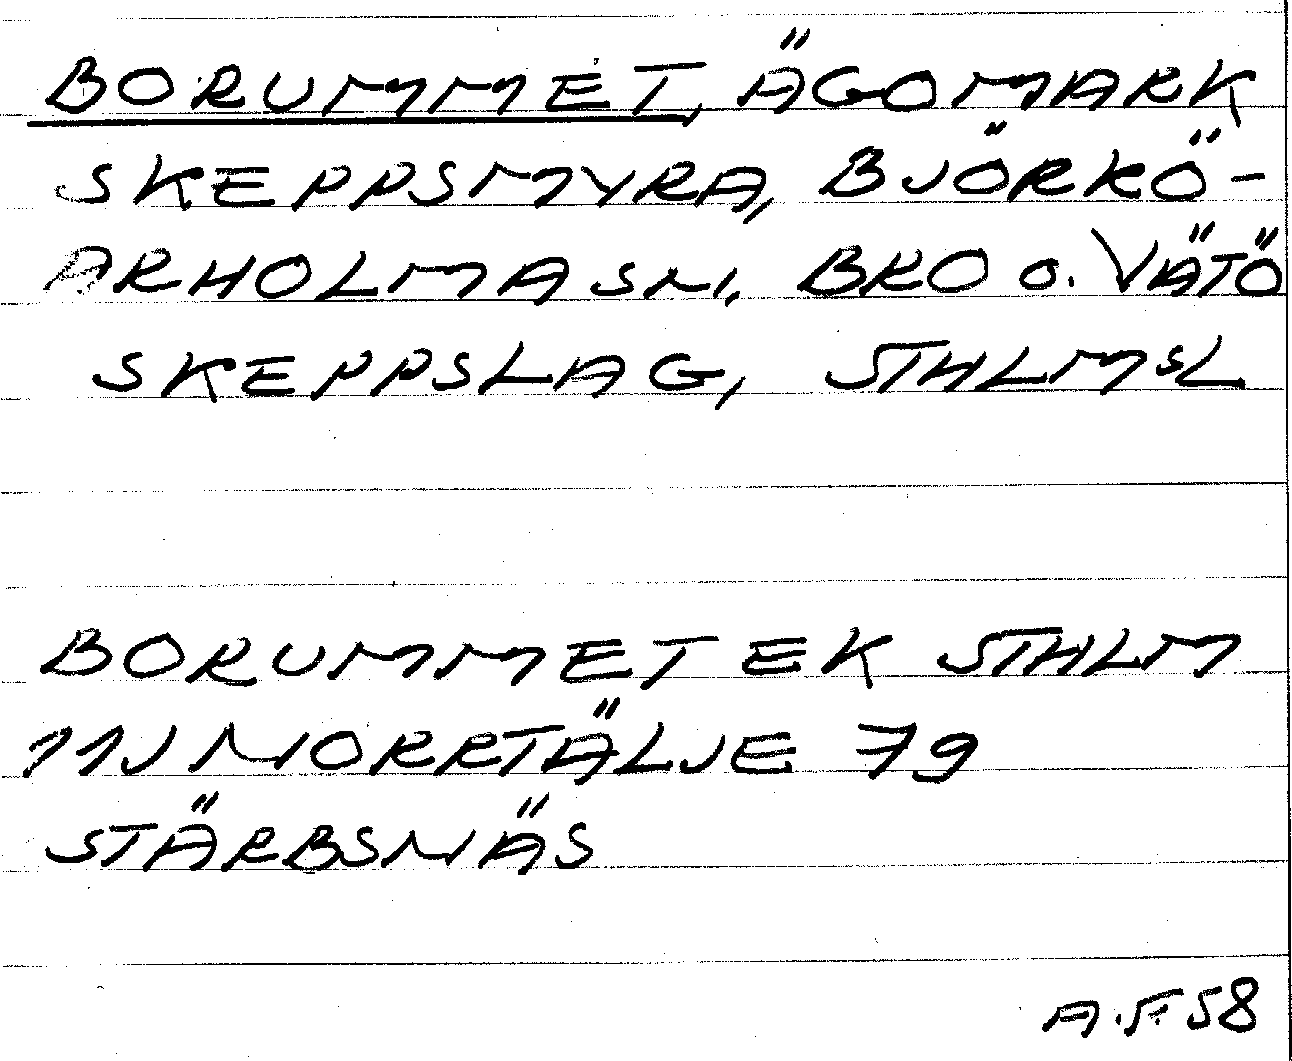 BORUMMET, ÄGOMARK
SKEPPSMYRA, BJÖRKÖ-
ARHOLMA SN, BRO o. VÄTÖ
SKEPPSLAG, STHLMSL
BORUMMET EK STHLM
11J NORRTÄLJE 79
STÄRBSNÄS
A.F. 58